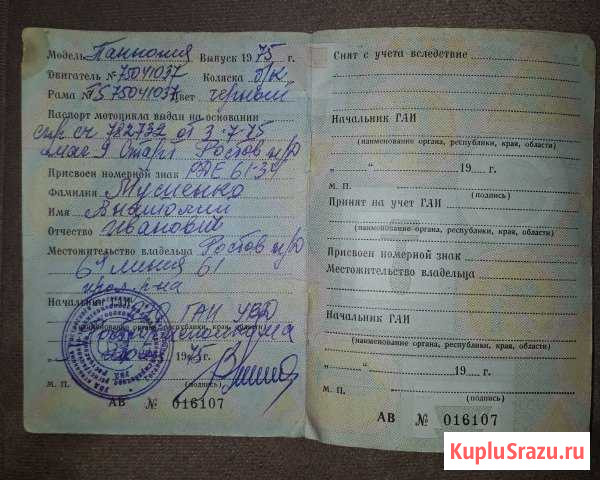 Модель Паннония Выпуск 1975 г.
Двигатель № 75041037 Коляска б/к
Рама № TS75041037 Цвет черный
Паспорт мотоцикла выдан на основании
спр сч 782732 от 3-7-75
маг 9 Старт Ростов н/Д
Присвоен номерной знак РДЕ 61-39
Фамилия Мусиенко
Имя
Отчество Иванович
Местожительство владельца Ростов н/Д
61
Начальник ГАИ ГАИ УВД
(наименование органа, республики, края, области)
19 г.
М. П. (подпись)
АВ № 016107
Снят с учета вследствие
Начальник ГАИ
(наименование органа, республики, края, области)
„ “ 19 г.
М. П. (подпись)
Принят на учет ГАИ
(наименование органа, республики, края, области)
Присвоен номерной знак
Местожительство владельца
Начальник ГАИ
(наименование органа, республики, края, области)
„ “ 19 г.
М. П. (подпись)
АВ № 016107
KupluSrazu.ru